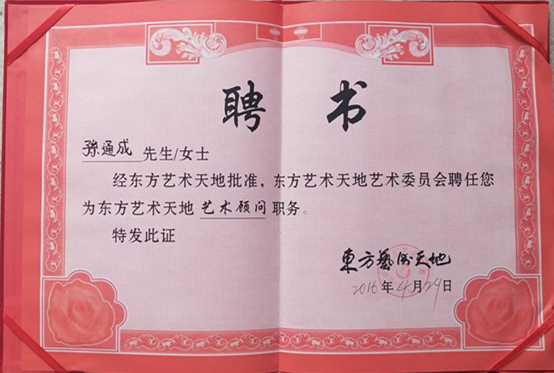 聘书
孫通成 先生/女士
经东方艺术天地批准，东方艺术天地艺术委员会聘任您
为东方艺术天地 艺术顾问 职务。
特发此证
東方藝術天地
2016年4月29日